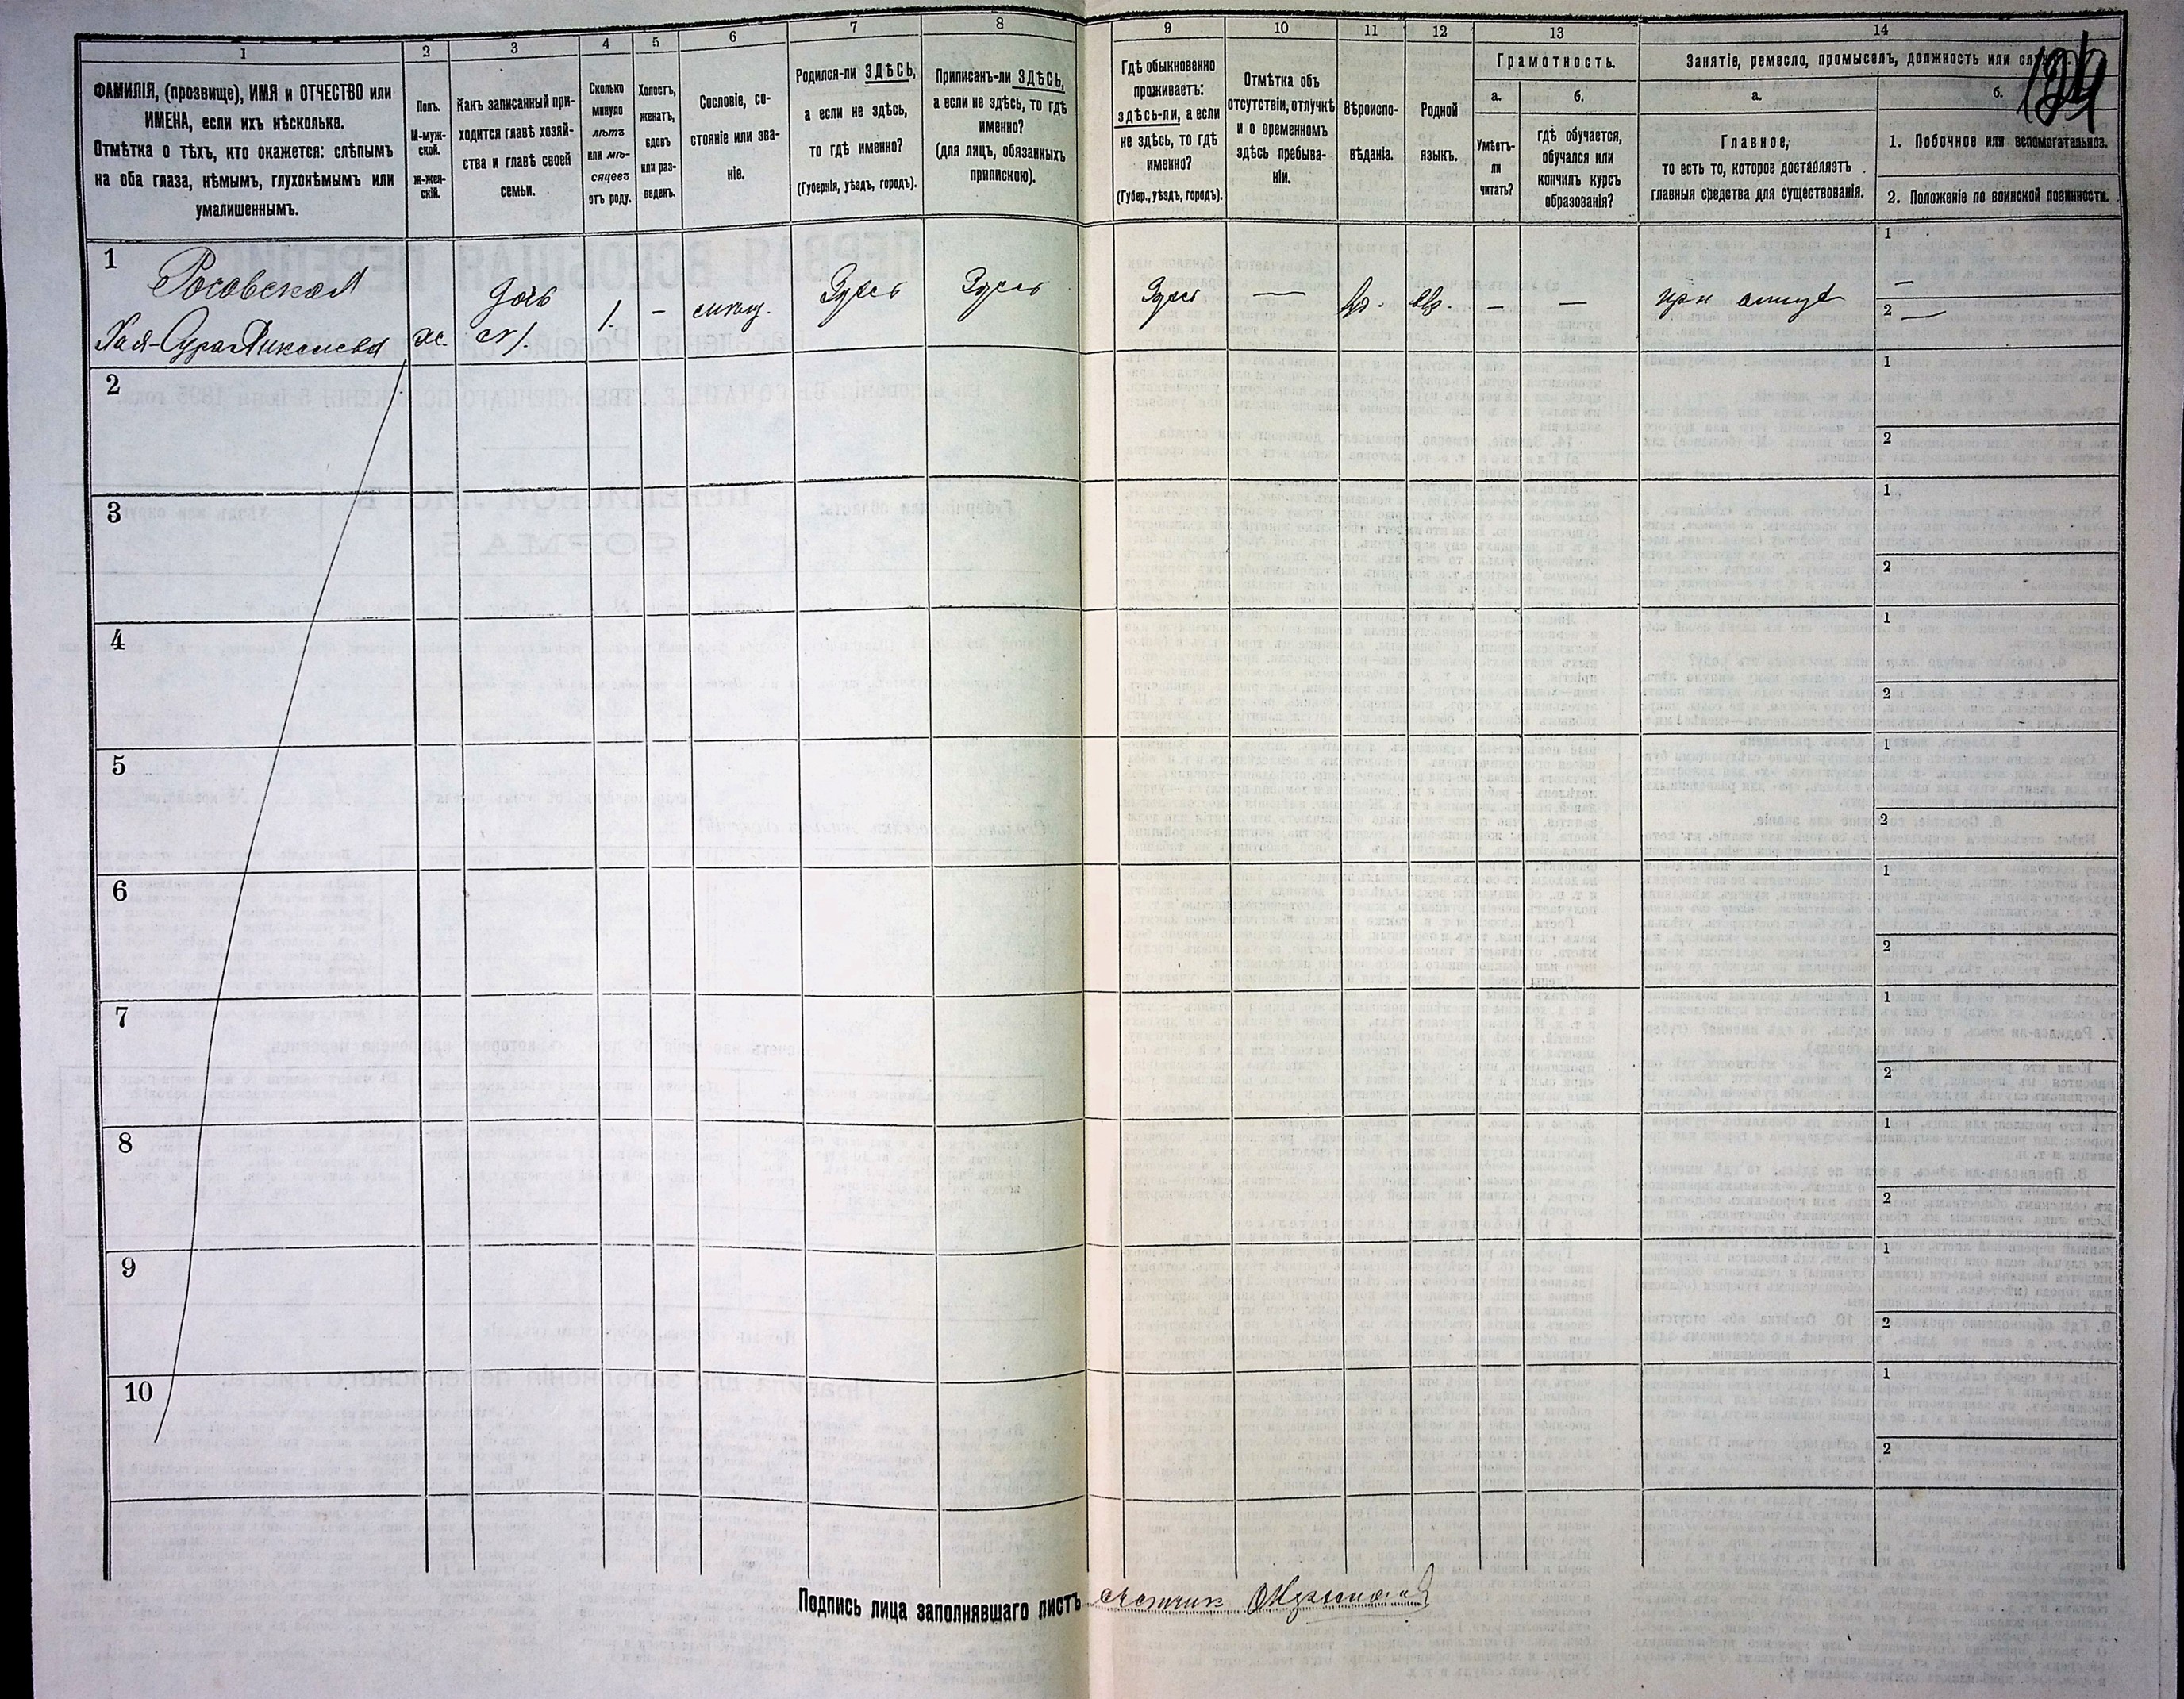 1
ФАМИЛІЯ, (прозвище), ИМЯ и ОТЧЕСТВО или
ИМЕНА, если ихъ нѣсколько.
Отмѣтка о тѣхъ, кто окажется: слѣпымъ
на оба глаза, нѣмымъ, глухонѣмымъ или
умалишеннымъ.
2
Полъ.
М-муж-
ской.
Ж-жен-
скій.
3
Какъ записанный при-
ходится главѣ хозяй-
ства и главѣ своей
семьи.
4
Сколько
минуло
лѣтъ
или мѣ-
сяцевъ
отъ роду.
5
Холостъ,
женатъ,
вдовъ
или раз-
веденъ.
6
Сословіе, со-
стояніе или зва-
ніе.
7
Родился-ли ЗДѢСЬ,
а если не здѣсь,
то гдѣ именно?
(Губернія, уѣздъ, городъ).
8
Приписанъ-ли ЗДѢСЬ,
а если не здѣсь, то гдѣ
именно?
(для лицъ, обязанныхъ
припискою).
9
Гдѣ обыкновенно
проживаетъ:
здѣсь-ли, а если
не здѣсь, то гдѣ
именно?
(Губер., уѣздъ, городъ).
10
Отмѣтка объ
отсутствіи, отлучкѣ
и о временномъ
здѣсь пребыва-
ніи.
11
Вѣроиспо-
вѣданіе.
12
Родной
языкъ.
13
Грамотность.
а.
Умѣетъ-
ли
читать?
б.
гдѣ обучается,
обучался или
кончилъ курсъ
образованія?
14
Занятіе, ремесло, промыселъ, должность или служба.
а.
Главное,
то есть то, которое доставляетъ
главныя средства для существованія.
б.
1. Побочное или вспомогательное.
2. Положеніе по воинской повинности.
1
Росовская
Хая-Сура Янкелева
ж.
дочь
№ 1.
1.
–
Здѣсь
Здѣсь
Здѣсь
—
–
—
при отцѣ
1 —
2 —
2
1
2
3
1
2
4
1
2
5
1
2
6
1
2
7
1
2
8
1
2
9
1
2
10
1
2
Подпись лица заполнявшаго листъ